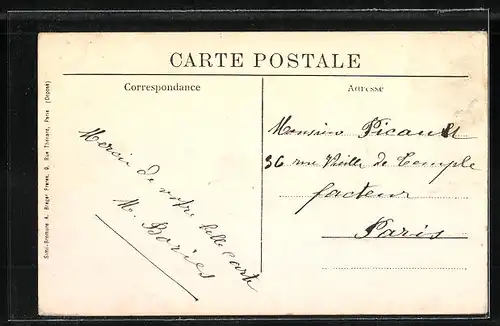 CARTE POSTALE
Correspondance
Adresse
Semi-Bromure A. Breger Frères, 9, Rue Thénard, Paris (Déposé)
Mercin de votre belle carte
M. Bories
Monsieur Picault
36 rue Vieille de Temple
facteur
Paris